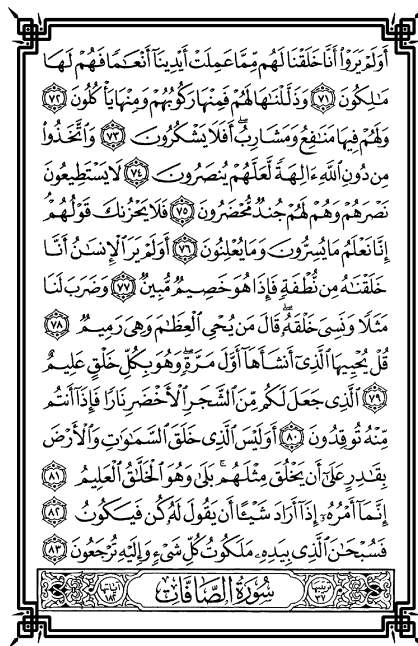 أَوَلَمْ يَرَوْا۟ أَنَّا خَلَقْنَا لَهُم مِّمَّا عَمِلَتْ أَيْدِينَآ أَنْعَٰمًا فَهُمْ لَهَا
مَٰلِكُونَ ٧١ وَذَلَّلْنَٰهَا لَهُمْ فَمِنْهَا رَكُوبُهُمْ وَمِنْهَا يَأْكُلُونَ ٧٢
وَلَهُمْ فِيهَا مَنَٰفِعُ وَمَشَارِبُ ۖ أَفَلَا يَشْكُرُونَ ٧٣ وَٱتَّخَذُوا۟
مِن دُونِ ٱللَّهِ ءَالِهَةً لَّعَلَّهُمْ يُنصَرُونَ ٧٤ لَا يَسْتَطِيعُونَ
نَصْرَهُمْ وَهُمْ لَهُمْ جُندٌ مُّحْضَرُونَ ٧٥ فَلَا يَحْزُنكَ قَوْلُهُمْ ۘ
إِنَّا نَعْلَمُ مَا يُسِرُّونَ وَمَا يُعْلِنُونَ ٧٦ أَوَلَمْ يَرَ ٱلْإِنسَٰنُ أَنَّا
خَلَقْنَٰهُ مِن نُّطْفَةٍ فَإِذَا هُوَ خَصِيمٌ مُّبِينٌ ٧٧ وَضَرَبَ لَنَا
مَثَلًا وَنَسِىَ خَلْقَهُۥ ۖ قَالَ مَن يُحْىِ ٱلْعِظَٰمَ وَهِىَ رَمِيمٌ ٧٨
قُلْ يُحْيِيهَا ٱلَّذِىٓ أَنشَأَهَآ أَوَّلَ مَرَّةٍ ۖ وَهُوَ بِكُلِّ خَلْقٍ عَلِيمٌ
٧٩ ٱلَّذِى جَعَلَ لَكُم مِّنَ ٱلشَّجَرِ ٱلْأَخْضَرِ نَارًا فَإِذَآ أَنتُم
مِّنْهُ تُوقِدُونَ ٨٠ أَوَلَيْسَ ٱلَّذِى خَلَقَ ٱلسَّمَٰوَٰتِ وَٱلْأَرْضَ
بِقَٰدِرٍ عَلَىٰٓ أَن يَخْلُقَ مِثْلَهُم ۚ بَلَىٰ وَهُوَ ٱلْخَلَّٰقُ ٱلْعَلِيمُ ٨١
إِنَّمَآ أَمْرُهُۥٓ إِذَآ أَرَادَ شَيْـًٔا أَن يَقُولَ لَهُۥ كُن فَيَكُونُ ٨٢
فَسُبْحَٰنَ ٱلَّذِى بِيَدِهِۦ مَلَكُوتُ كُلِّ شَىْءٍ وَإِلَيْهِ تُرْجَعُونَ ٨٣
سُورَةُ الصَّافَّاتِ